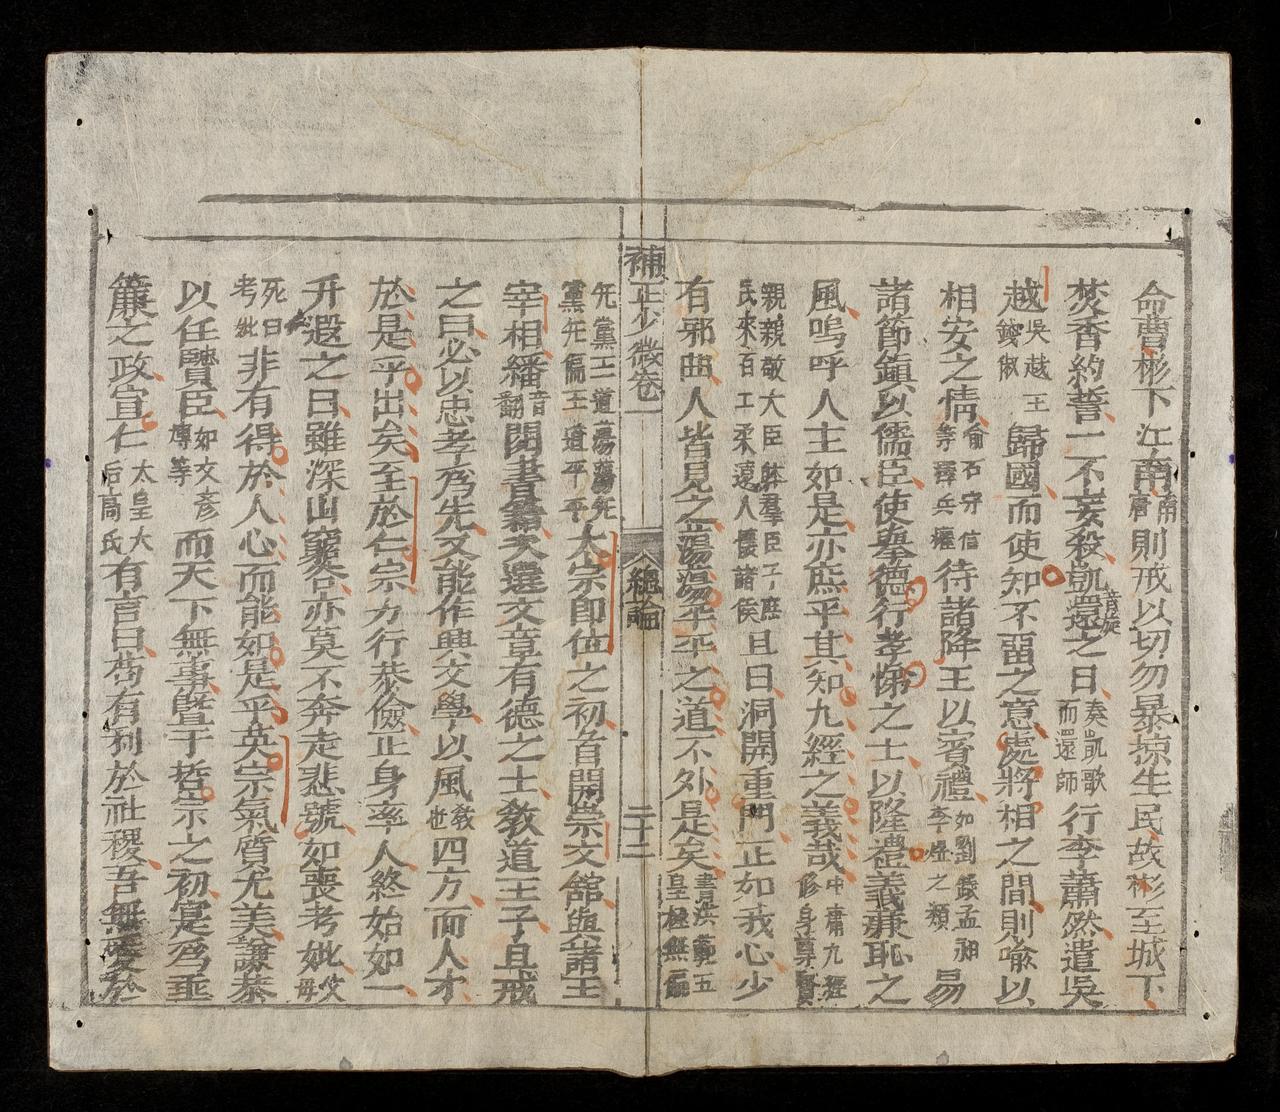 命曹彬下江南南唐則戒以切勿暴掠生民故彬至城下
焚香約誓一不妄殺凱還音旋之日奏凱歌而還師行李蕭然遣吳
越吳越王錢俶歸國而使知不畱之意處將相之間則喻以
相安之情喻石守信等釋兵權待諸降王以賓禮如劉鋹孟昶李煜之類易
諸節鎮以儒臣使舉德行孝悌之士以隆禮義亷恥之
風嗚呼人主如是亦庶乎其知九經之義哉中庸九經修身尊賢
親親敬大臣體羣臣子庶民來百工柔遠人懷諸侯且曰洞開重門正如我心少
有邪曲人皆見之蕩蕩平平之道不外是矣書洪範五皇極無偏
補正少微卷一
總論
二十二
无黨王道蕩蕩无黨无偏王道平平太宗即位之初首開崇文舘與諸王
宰相繙音翻閱書籍又選文章有德之士敎道王子且戒
之曰必以忠孝爲先又能作興文學以風教也四方而人才
於是乎出矣至於仁宗力行恭儉正身率人終始如一
升遐之日雖深山窮谷亦莫不奔走悲號如喪考妣父母
死曰考妣非有得於人心而能如是乎英宗氣質尤美謙恭
以任賢臣如文彥博等而天下無事曁于哲宗之初寔爲垂
簾之政宣仁太皇太后高氏有言曰苟有利於社稷吾無愛於